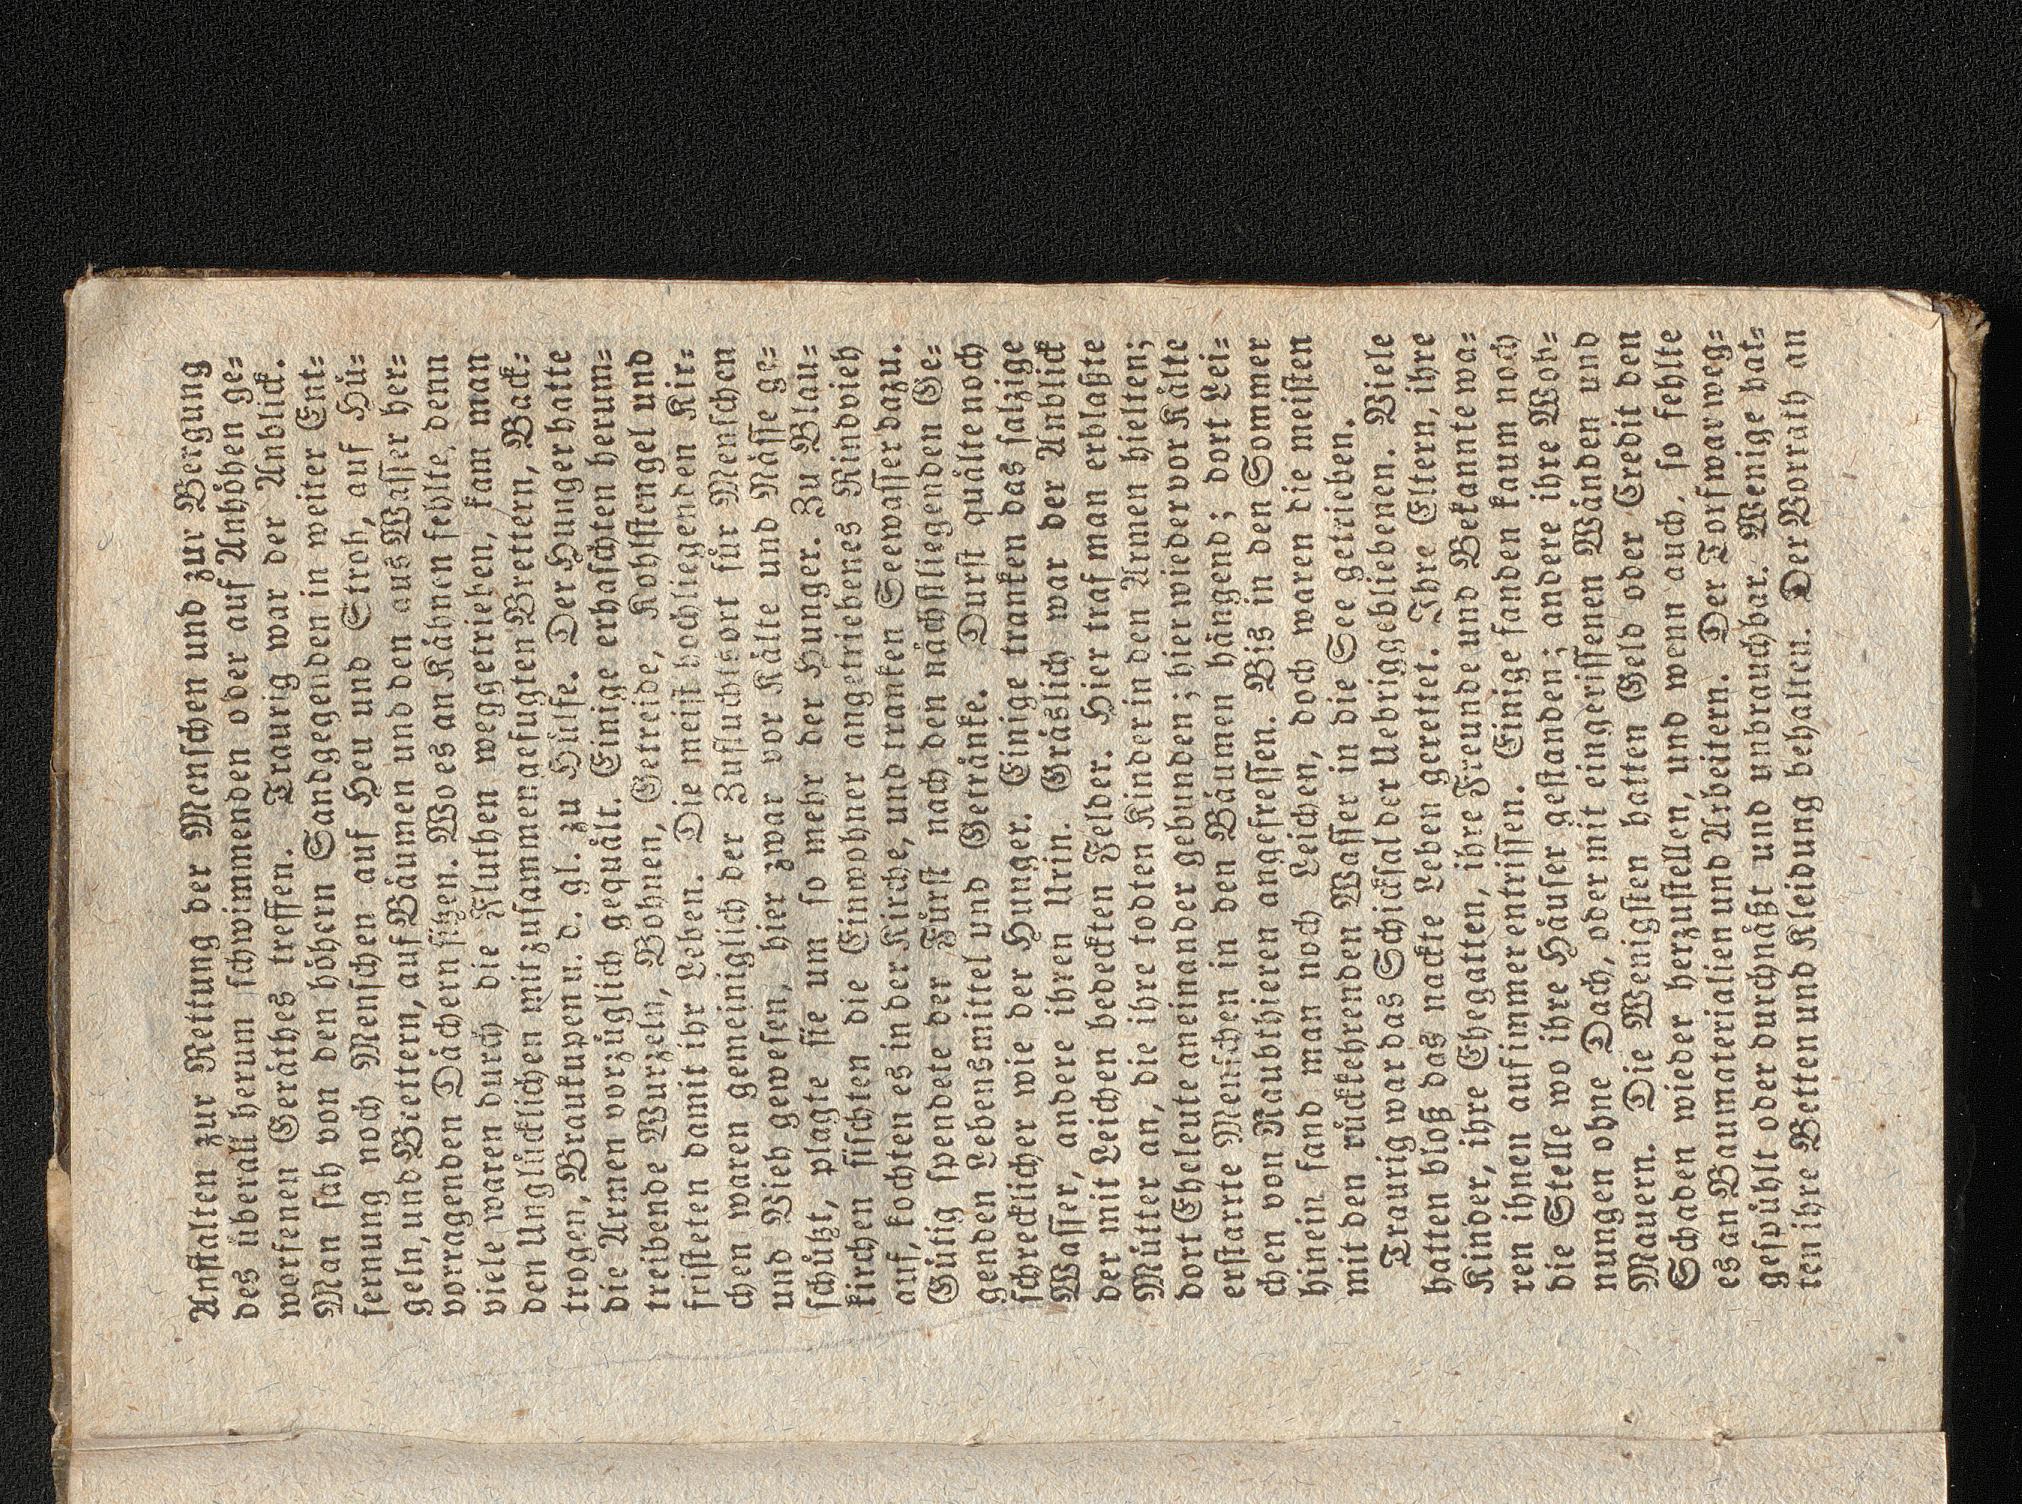 Anstalten zur Rettung der Menschen und zur Bergung
des überall herum schwimmenden oder auf Anhöhen ge-
worfenen Geräthes treffen. Traurig war der Anblick.
Man sah von den höhern Sandgegenden in weiter Ent-
fernung noch Menschen auf Heu und Stroh, auf Hü-
geln, und Brettern, auf Bäumen und den aus Wasser her-
vorragenden Dächern sitzen. Wo es an Kähnen fehlte, denn
viele waren durch die Fluthen weggetrieben, kam man
den Unglücklichen mit zusammengefugten Brettern, Back-
trogen, Braukupen u. d. gl. zu Hülfe. Der Hunger hatte
die Armen vorzüglich gequält. Einige erhaschten herum-
treibende Wurzeln, Bohnen, Getreide, Kohlstengel und
fristeten damit ihr Leben. Die meist hochliegenden Kir-
chen waren gemeiniglich der Zufluchtsort für Menschen
und Vieh gewesen, hier zwar vor Kälte und Nässe ge-
schützt, plagte sie um so mehr der Hunger. Zu Blau-
kirchen fischten die Einwohner angetriebenes Rindvieh
auf, kochten es in der Kirche, und tranken Seewasser dazu.
Gütig spendete der Fürst nach den nächstliegenden Ge-
genden Lebensmittel und Getränke. Durst quälte noch
schrecklicher wie der Hunger. Einige tranken das salzige
Wasser, andere ihren Urin. Gräslich war der Anblick
der mit Leichen bedeckten Felder. Hier traf man erblaßte
Mütter an, die ihre todten Kinder in den Armen hielten;
dort Eheleute aneinander gebunden; hier wieder vor Kälte
erstarrte Menschen in den Bäumen hängend; dort Lei-
chen von Raubthieren angefressen. Bis in den Sommer
hinein fand man noch Leichen, doch waren die meisten
mit den rückkehrenden Wasser in die See getrieben.
Traurig war das Schicksal der Uebriggebliebenen. Viele
hatten bloß das nackte Leben gerettet. Ihre Eltern, ihre
Kinder, ihre Ehegatten, ihre Freunde und Bekannte wa-
ren ihnen auf immer entrissen. Einige fanden kaum noch
die Stelle wo ihre Häuser gestanden; andere ihre Woh-
nungen ohne Dach, oder mit eingerissenen Wänden und
Mauern. Die Wenigsten hatten Geld oder Credit den
Schaden wieder herzustellen, und wenn auch, so fehlte
es an Baumaterialien und Arbeitern. Der Torf war weg-
gespühlt oder durchnäßt und unbrauchbar. Wenige hat-
ten ihre Betten und Kleidung behalten. Der Vorrath an